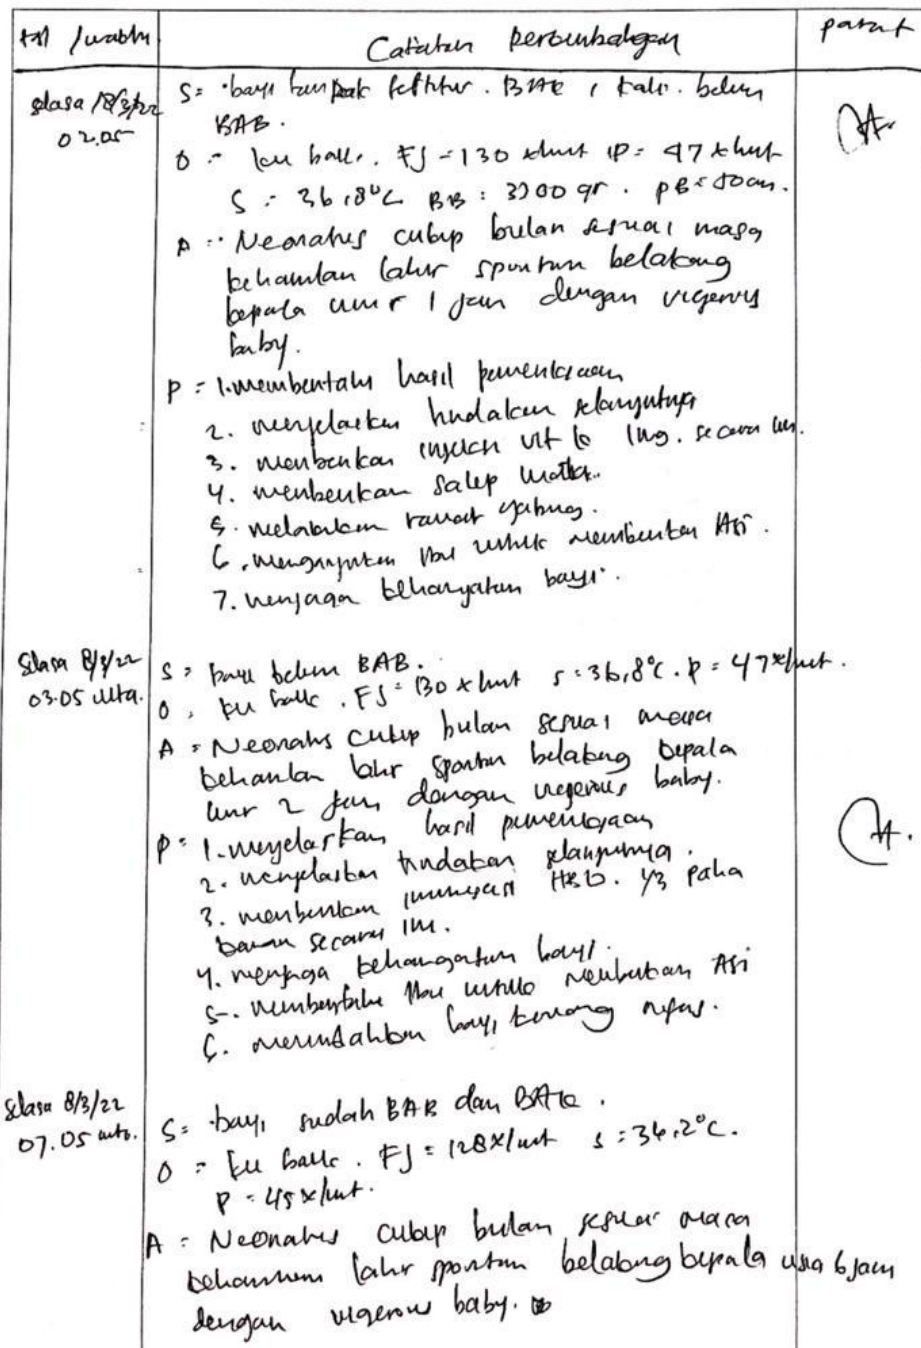 tgl /waktu
Catatan perkembangan
paraf
selasa /8/3/22
02.05
S= bayi tampak BAK 1 kali. belum
BAB.
O = ku baik. FJ = 130 x/mnt P = 47 x/mnt
S = 36,8°C BB : gr. PB = 50 cm.
A = Neonatus cukup bulan sesuai masa
kehamilan lahir spontan belakang
kepala umur 1 jam dengan vigerous
baby.
P = 1. memberitahu hasil pemeriksaan
2. menjelaskan tindakan selanjutnya
3. memberikan injeksi vit k 1mg. secara im.
4. memberikan salep mata.
5. melakukan rawat gabung.
6. menganjurkan ibu untuk memberikan Asi.
7. menjaga kehangatan bayi.
Selasa 8/3/22
03.05 wita.
S = bayi belum BAB.
O = ku baik. FJ = 130 x/mnt s = 36,8°C. P = 47x/mnt.
A = Neonatus cukup bulan sesuai masa
kehamilan lahir spontan belakang kepala
umur 2 jam dengan vigerous baby.
P = 1. menjelaskan hasil pemeriksaan
2. menjelaskan tindakan selanjutnya.
3. memberikan imunisasi HB0. 1/3 paha
kanan secara im.
4. menjaga kehangatan bayi.
5. ibu untuk memberikan Asi
6. memindahkan bayi keruang nifas.
Selasa 8/3/22
07.05 wita.
S= bayi sudah BAB dan BAK.
O = ku baik. FJ = 128x/mnt s = 36,2°C.
P = 45 x/mnt.
A = Neonatus cukup bulan sesuai masa
kehamilan lahir spontan belakang kepala usia 6 jam
dengan vigerous baby.